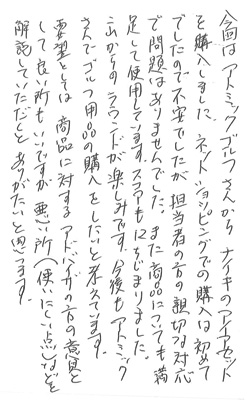 今回はアトミックゴルフさんからナイキのアイアンセット
を購入しました。ネットショッピングでの購入は初めて
でしたので不安でしたが担当者の方の親切な対応
で問題はありませんでした。また商品についても満
足して使用しています。スコアも12ちぢまりました。
これからのラウンドが楽しみです。今後もアトミック
さんでゴルフ用品の購入をしたいと考えています。
要望としては商品に対するアドバイザの方の意見と
して良い所もいいですが悪い所(使いにくい点)などを
解説していただくとありがたいと思います。